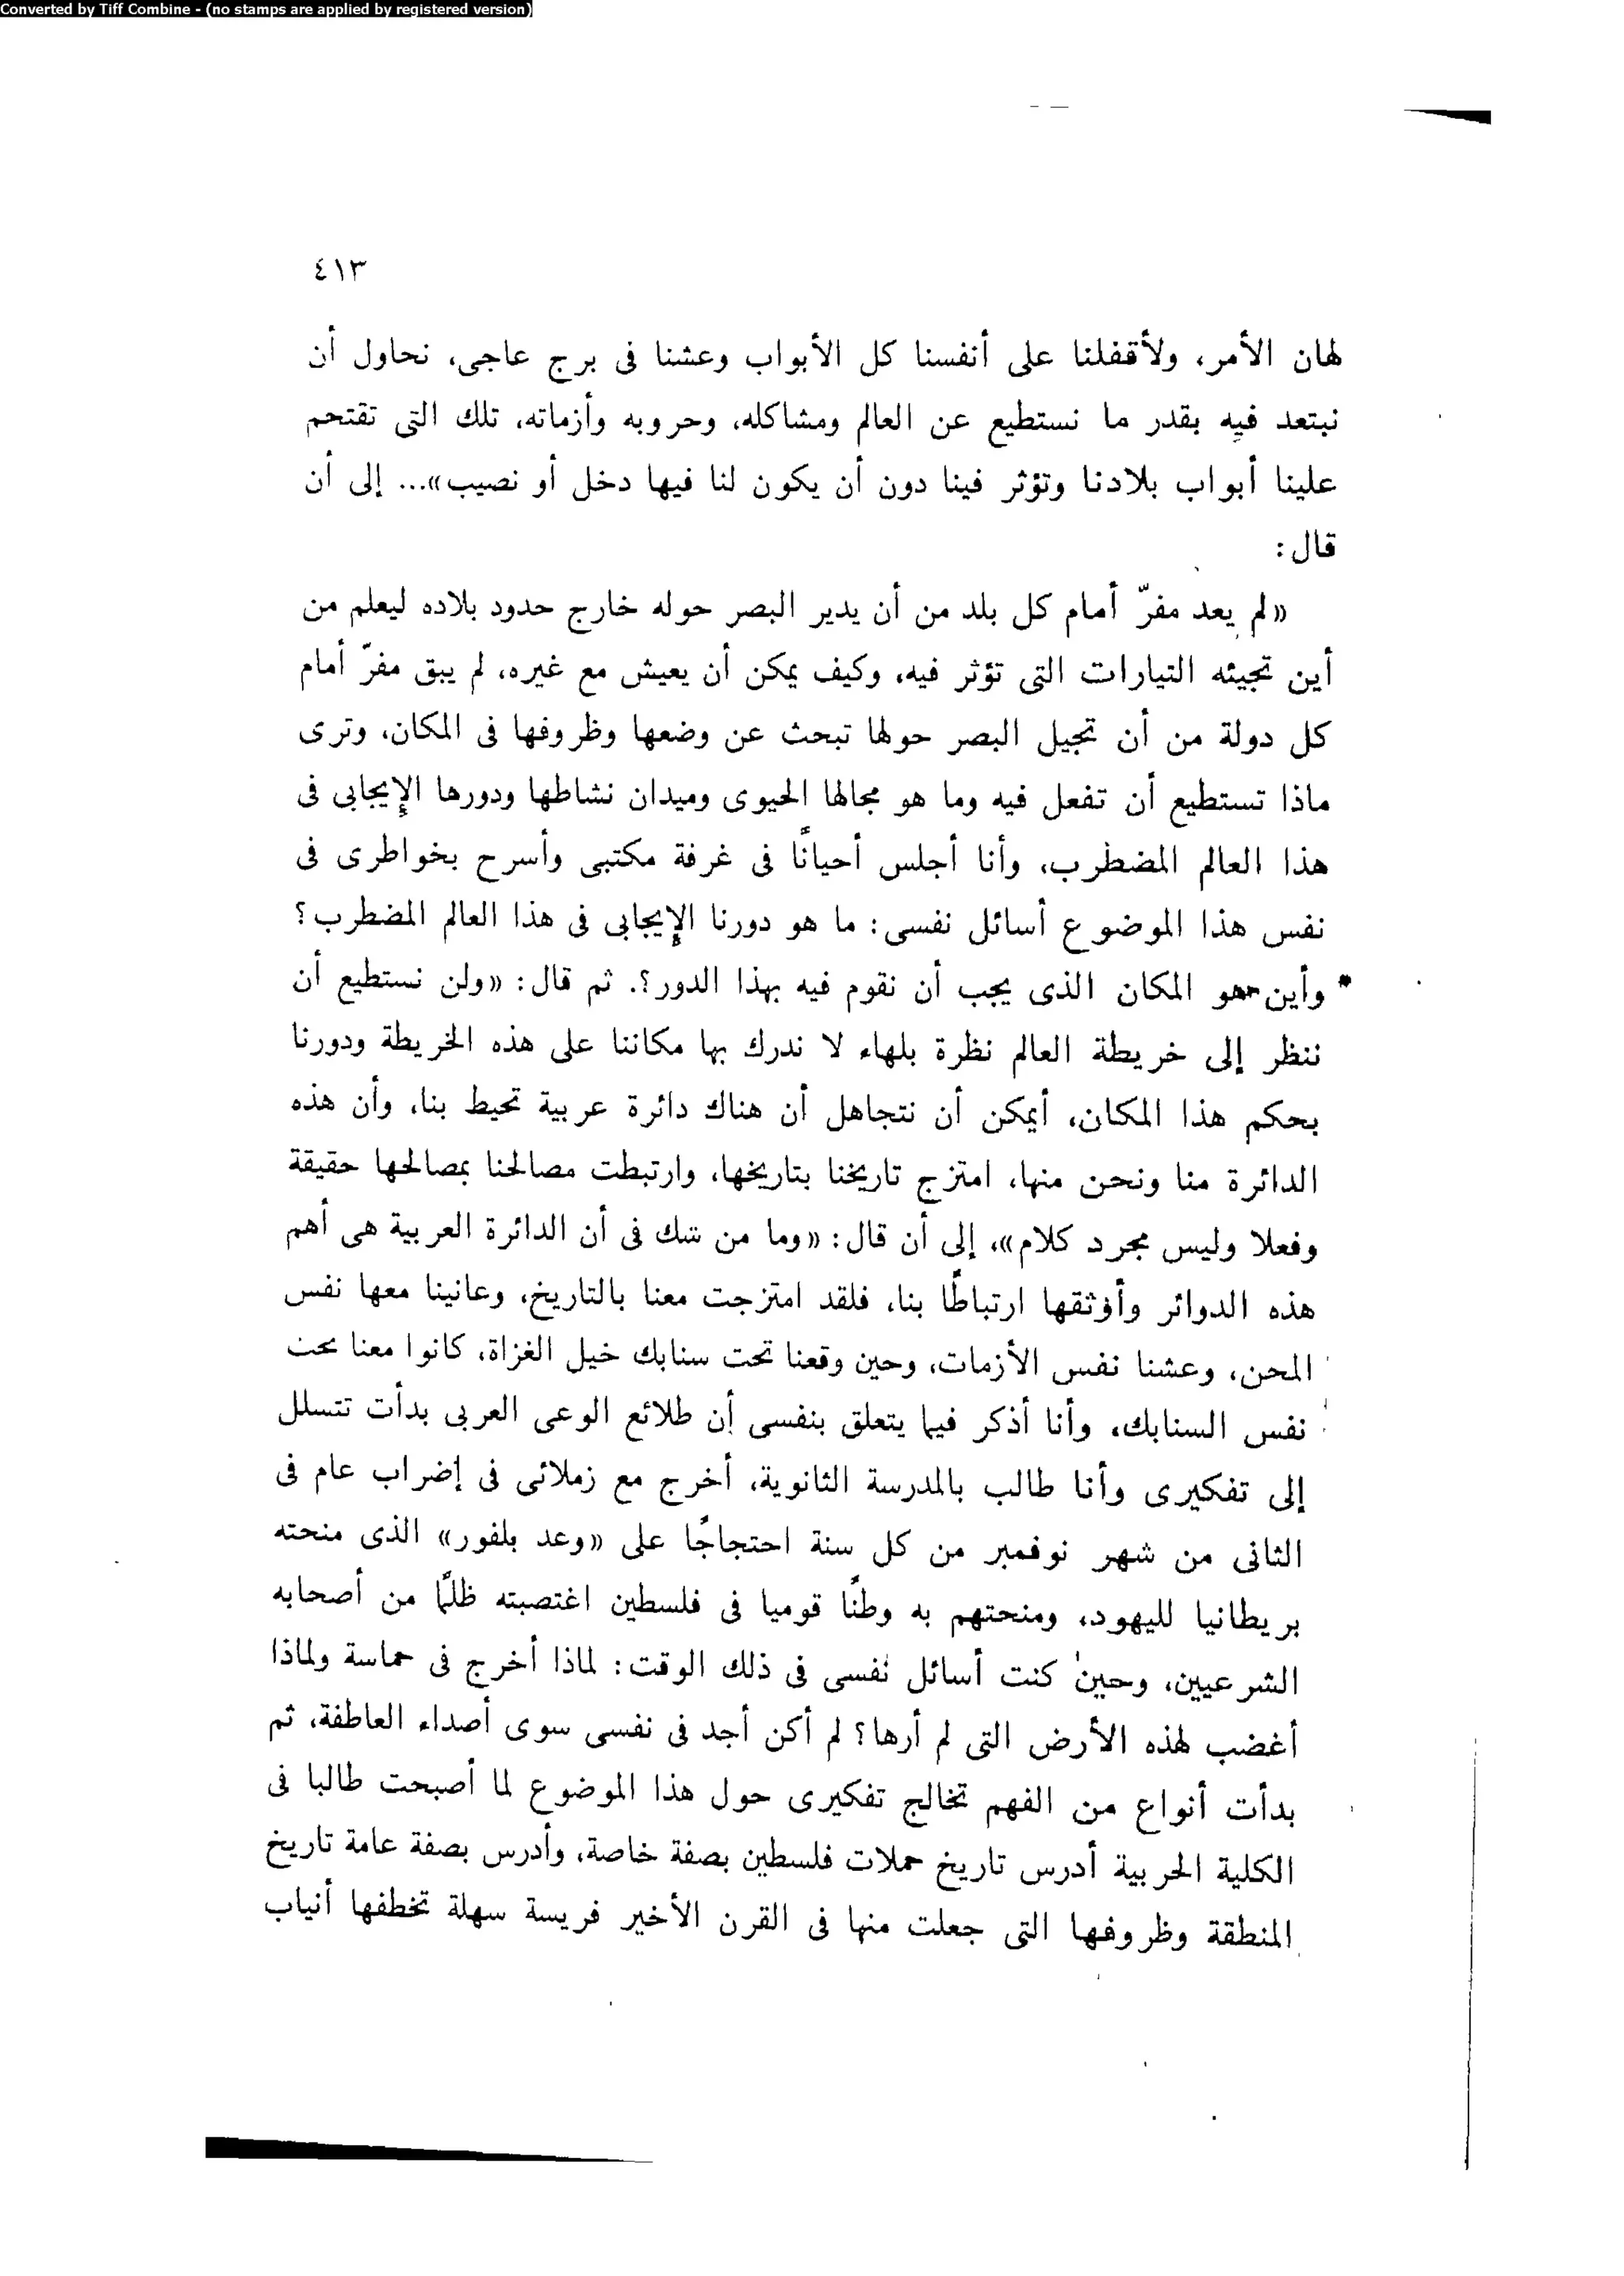 Converted by Tiff Combine - (no stamps are applied by registered version)
٤١٣
لهان الأمر، ولأقفلنا على أنفسنا كل الأبواب وعشنا فى برج عاجى، نحاول أن
نبتعد فيه بقدر ما نستطيع عن العالم ومشاكله، وحروبه وأزماته، تلك التى تقتحم
علينا أبواب بلادنا وتؤثر فينا دون أن يكون لنا فيها دخل أو نصيب»... إلى أن
قال:
«لم يعد مفرّ أمام كل بلد من أن يدير البصر حوله خارج حدود بلاده ليعلم من
أين تجيئه التيارات التى تؤثر فيه، وكيف يمكن أن يعيش مع غيره، لم يبق مفرّ أمام
كل دولة من أن تجيل البصر حولها تبحث عن وضعها وظروفها فى المكان، وترى
ماذا تستطيع أن تفعل فيه وما هو مجالها الحيوى وميدان نشاطها ودورها الإيجابى فى
هذا العالم المضطرب، وأنا أجلس أحيانًا فى غرفة مكتبى وأسرح بخواطرى فى
نفس هذا الموضوع أسائل نفسى: ما هو دورنا الإيجابى فى هذا العالم المضطرب؟
وأين هو المكان الذى يجب أن نقوم فيه بهذا الدور؟. ثم قال: «ولن نستطيع أن
ننظر إلى خريطة العالم نظرة بلهاء لا ندرك بها مكاننا على هذه الخريطة ودورنا
بحكم هذا المكان، أيمكن أن نتجاهل أن هناك دائرة عربية تحيط بنا، وأن هذه
الدائرة منا ونحن منها، امتزج تاريخنا بتاريخها، وارتبطت مصالحنا بمصالحها حقيقة
وفعلا وليس مجرد كلام»، إلى أن قال: «وما من شك فى أن الدائرة العربية هى أهم
هذه الدوائر وأوثقها ارتباطًا بنا، فلقد امتزجت معنا بالتاريخ، وعانينا معها نفس
المحن، وعشنا نفس الأزمات، وحين وقعنا تحت سنابك خيل الغزاة، كانوا معنا تحت
نفس السنابك، وأنا أذكر فيما يتعلق بنفسى أن طلائع الوعى العربى بدأت تتسلل
إلى تفكيرى وأنا طالب بالمدرسة الثانوية، أخرج مع زملائى فى إضراب عام فى
الثانى من شهر نوفمبر من كل سنة احتجاجًا على «وعد بلفور» الذى منحته
بريطانيا لليهود، ومنحتهم به وطنًا قوميا فى فلسطين اغتصبته ظلمًا من أصحابه
الشرعيين، وحين كنت أسائل نفسى فى ذلك الوقت: لماذا أخرج فى حماسة ولماذا
أغضب لهذه الأرض التى لم أرها؟ لم أكن أجد فى نفسى سوى أصداء العاطفة، ثم
بدأت أنواع من الفهم تخالج تفكيرى حول هذا الموضوع لما أصبحت طالبا فى
الكلية الحربية أدرس تاريخ حملات فلسطين بصفة خاصة، وأدرس بصفة عامة تاريخ
المنطقة وظروفها التى جعلت منها فى القرن الأخير فريسة سهلة تخطفها أنياب